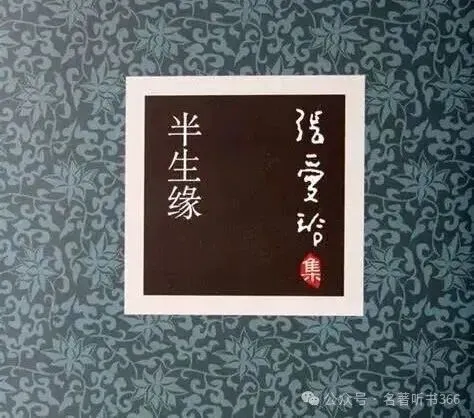 張愛玲
集
半生缘
公众号·名著听书366